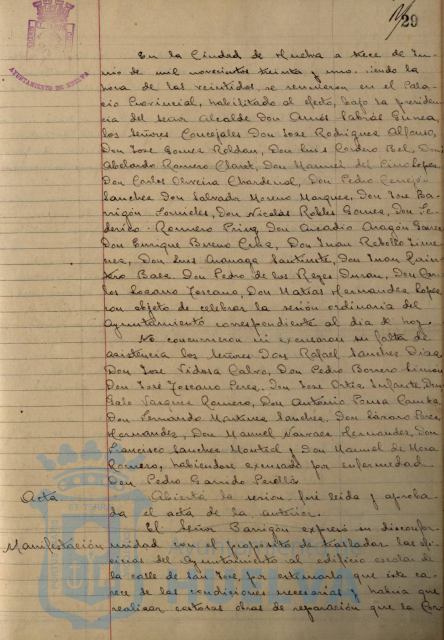 29
AYUNTAMIENTO DE HUELVA
En la Ciudad de Huelva a trece de Ju-
nio de mil novecientos treinta y uno, siendo la
hora de las veintidos, se reunieron en el Pala-
cio Provincial, habilitado al efecto, bajo la presiden-
cia del señor Alcalde Don Amós Sabrás Gurrea,
los señores Concejales Don Jose Rodriguez Alfonso,
Don Jose Gomez Roldan, Don Luis Cordero Bel, Don
Abelardo Romero Claret, Don Manuel del Pino Lopez,
Don Carlos Oliveira Chardenal, Don Pedro Cerrejón
Sanchez, Don Salvador Moreno Marquez, Don Jose Ba-
rrigón Fornieles, Don Nicolás Robles Gomez, Don Fe-
derico Romero Don Arcadio Aragón
Don Enrique Bueno Cruz, Don Juan Rebollo Jime-
nez, Don Luis Don Juan Quin-
tero Baez, Don Pedro de los Reyes Duran, Don Car-
los Lozano Toscano, Don Matías Hernandez Lopez
con objeto de celebrar la sesión ordinaria del
Ayuntamiento correspondiente al dia de hoy.
No concurrieron ni excusaron su falta de
asistencia los señores Don Rafael Sanchez Diaz,
Don Jose Calvo, Don Pedro Borrero Limon
Don José Toscano Perez, Don Jose Ortiz Infante, Don
Vazquez Romero, Don Antonio Pousa
Don Fernando Martinez Sanchez, Don Lázaro Perez
Hernandez, Don Manuel Narvaez Hernandez, Don
Francisco Sanchez Montiel y Don Manuel de Mora
Romero, habiendose excusado por enfermedad
Don Pedro Garrido Perelló.
Acta
Abierta la sesion fué leida y aproba-
da el acta de la anterior.
Manifestación
El Señor Barrigón expresó su disconfor-
midad con el propósito de trasladar las ofi-
cinas del Ayuntamiento al edificio escolar de
la calle de San Jose, por estimarlo que éste ca-
rece de las condiciones necesarias y habria que
realizar costosas obras de reparación que la Cor-